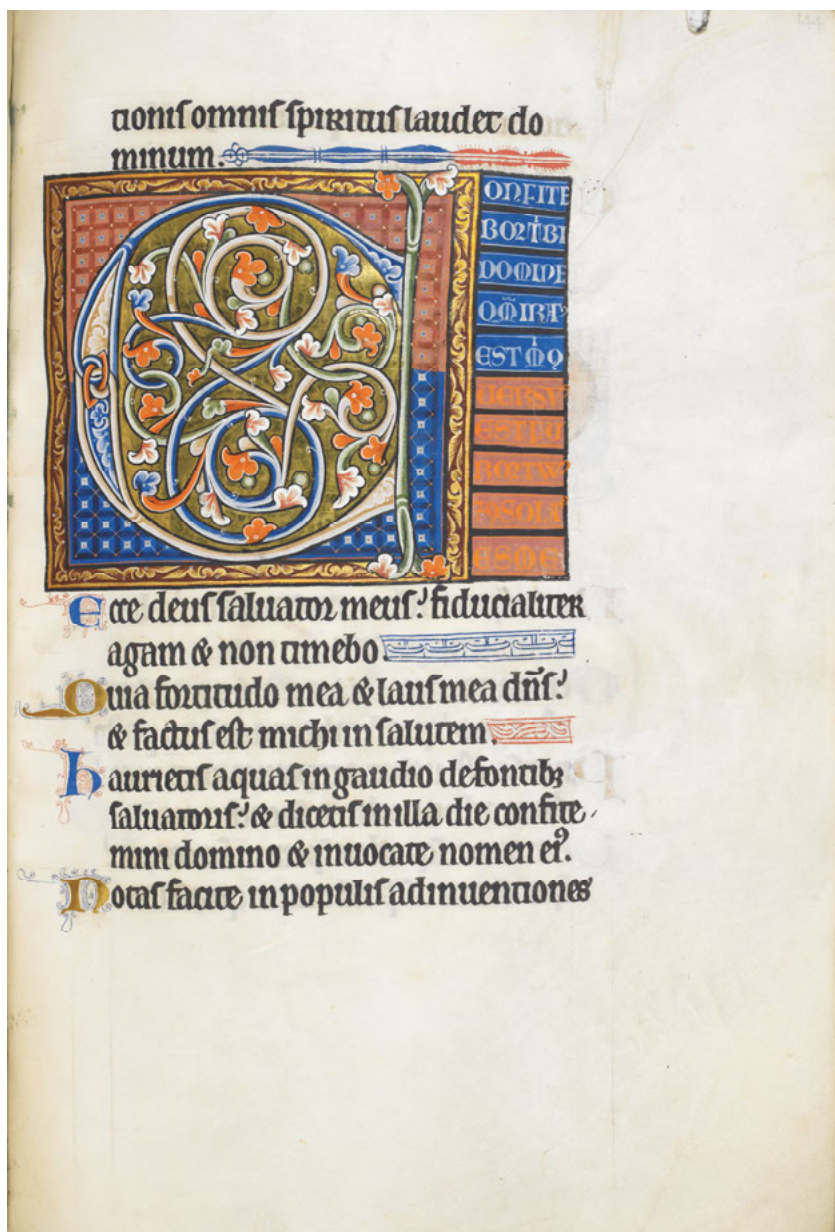 tionis omnis spiritus laudet do
minum.
C
ONFITE
BOR TIBI
DOMINE
QM̅ IRATꝰ
EST M ꝯ
UERSUꝰ
EST FU
ROR TUUꝰ
ESME
Ecce deus saluator meus? fiducialiter
agam & non timebo
Quia fortitudo mea & laus mea dn̅s?
& factus est michi in salutem
haurietis aquas in gaudio de fontibꝫ
saluatoris? & dicetis in illa die confite
mini domino & inuocate nomen eiꝰ.
Notas facite in populis adinuentiones